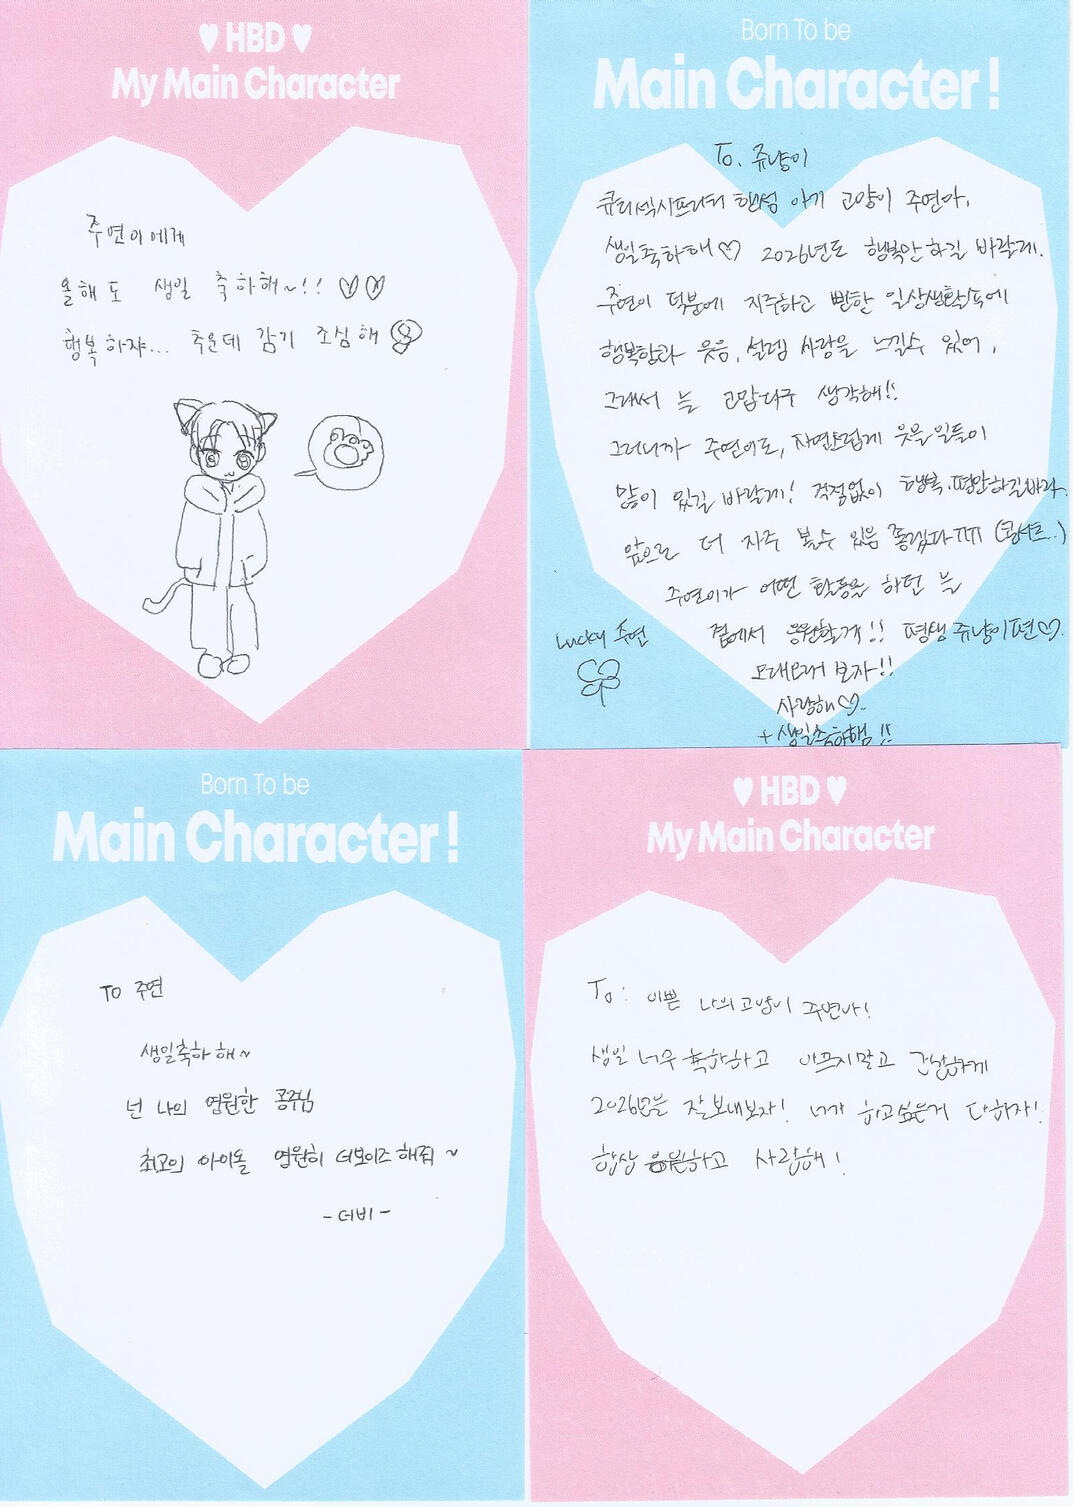 ♥ HBD ♥
My Main Character
주연이에게
올해도 생일 축하해~!! ♡♡
행복하자... 추운데 감기 조심해
Born To be
Main Character!
To. 쥬냥이
큐티섹시프리티 핸섬 아기 고양이 주연아,
생일축하해♡ 2026년도 행복만 하길 바랄게.
주연이 덕분에 지루하고 뻔한 일상생활속에
행복함과 웃음, 설렘 사랑을 느낄수 있어,
그래서 늘 고맙다구 생각해!!
그러니까 주연이도, 자연스럽게 웃을 일들이
많이 있길 바랄게! 걱정없이 행복, 평안하길바라.
앞으로 더 자주 볼수 있음 좋겠다ㅠㅠ (콘서트..)
주연이가 어떤 활동을 하던 늘
곁에서 응원할게!! 평생 쥬냥이편♡.
Lucky 주연
오래오래 보자!!
사랑해♡.
+ 생일축하햄!!
Born To be
Main Character!
To 주연
생일축하 해~
넌 나의 영원한 공주님
최고의 아이돌 영원히 더보이즈 해줘~
- 더비 -
♥ HBD ♥
My Main Character
To: 이쁜 나의고양이 주연아!
생일 너무 축하하고 아프지말고 건강하게
2026년을 잘보내보자! 너가 하고싶은거 다하자!
항상 응원하고 사랑해!